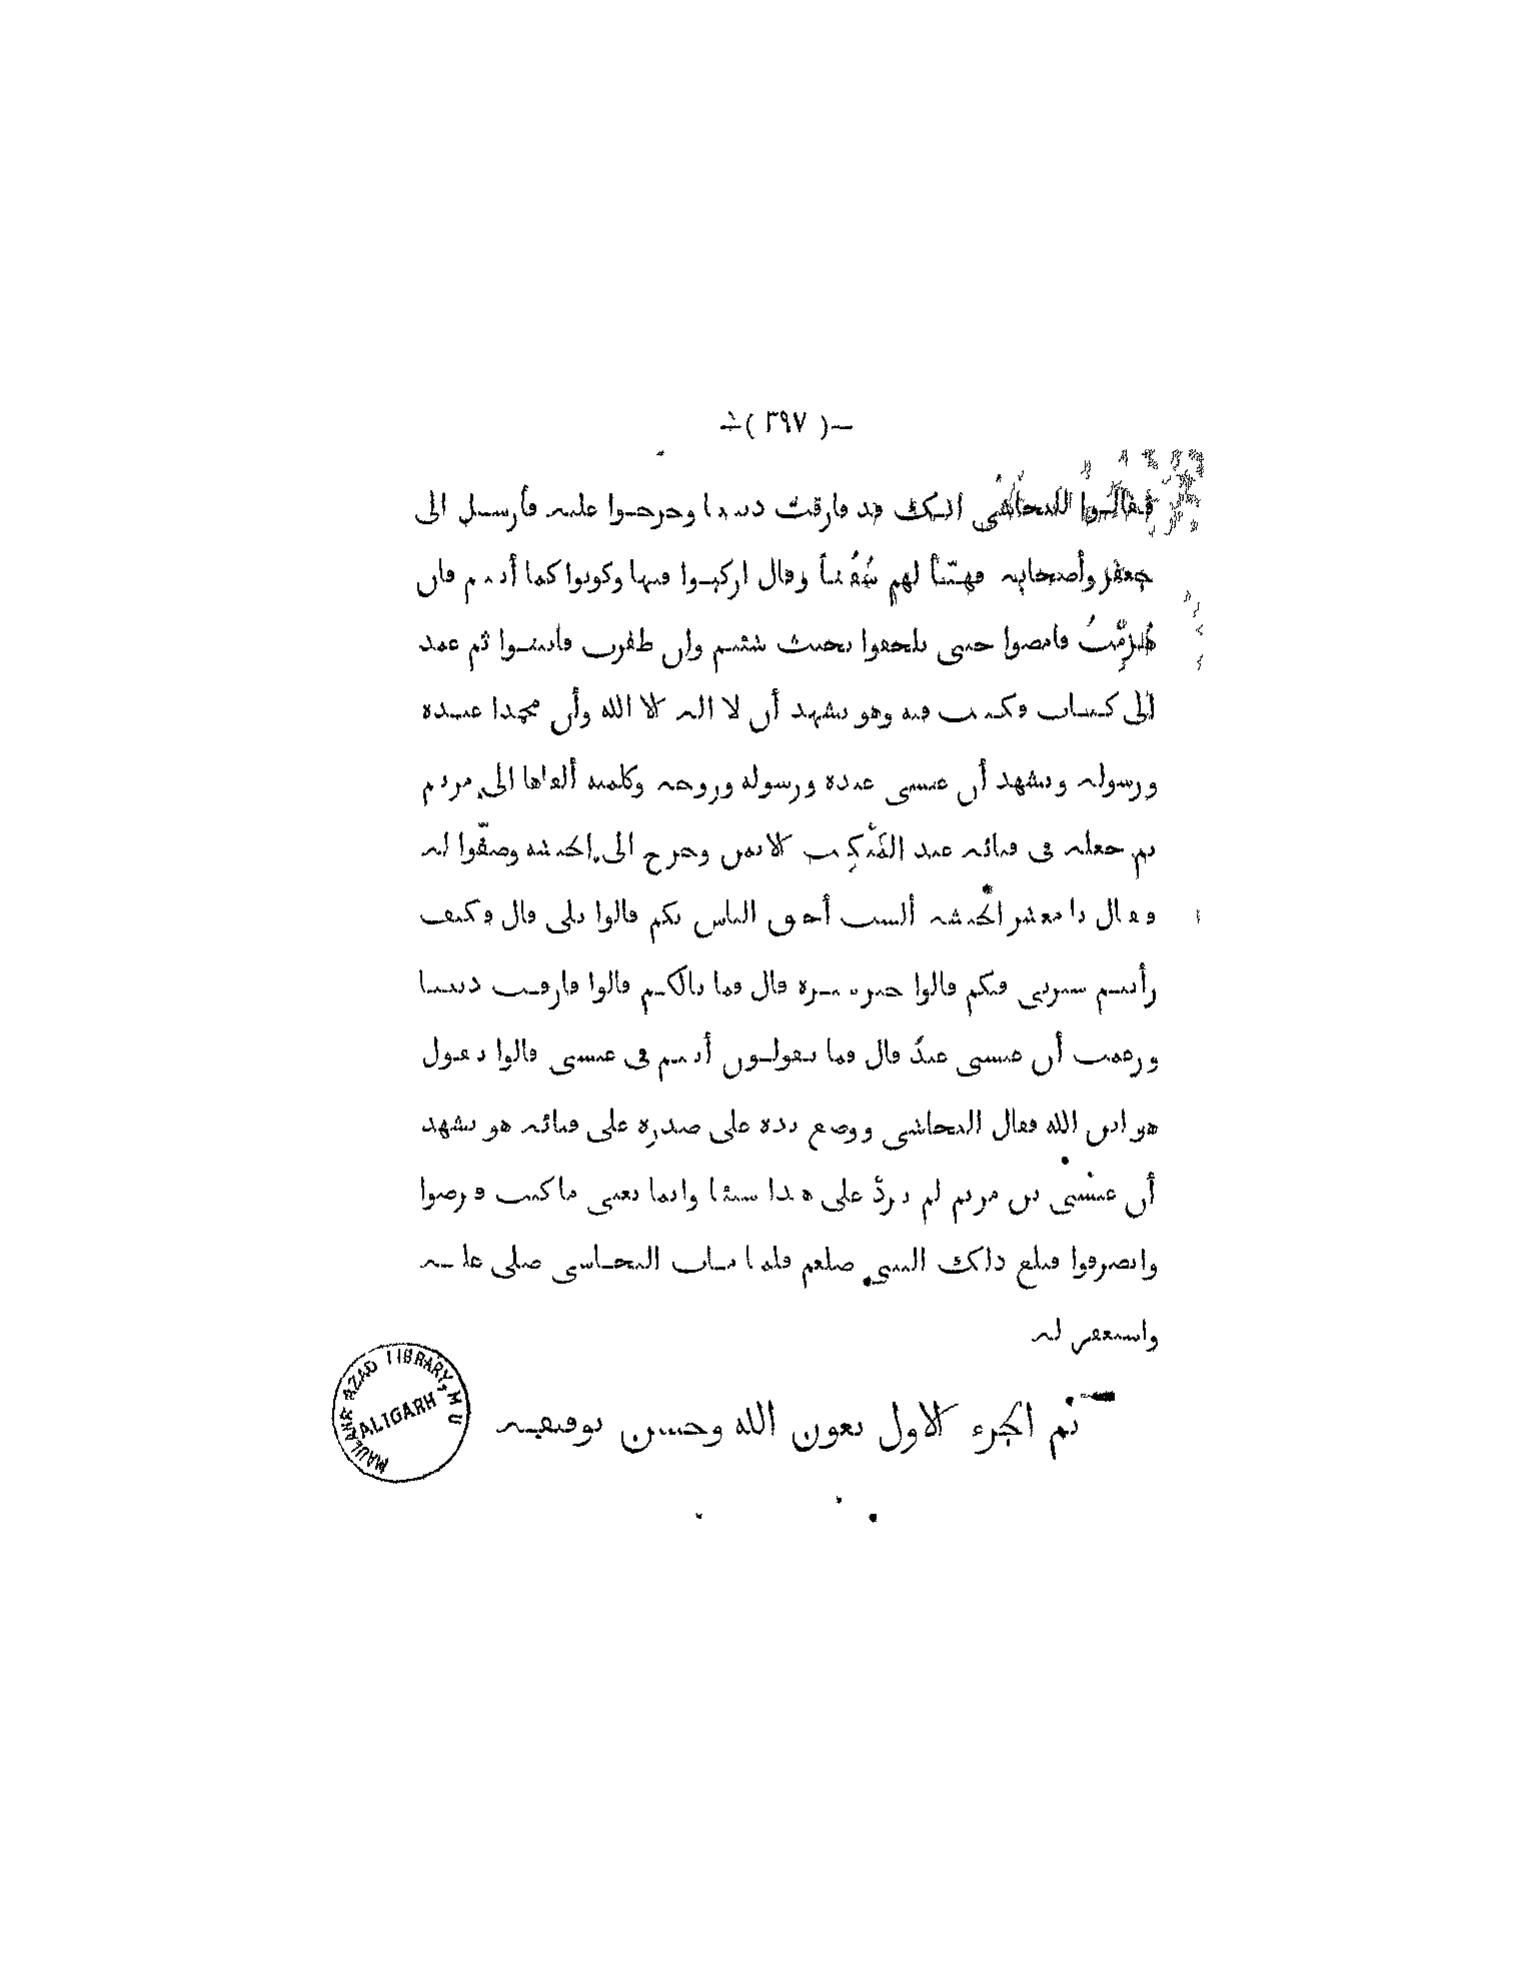 —( ٣٩٧ )—
فقالوا للنجاشى انك قد فارقت ديننا وخرجوا عليه فأرسل الى
جعفر وأصحابه فهيّأ لهم سُفُناً وقال اركبوا فيها وكونوا كما أنتم فان
هُزِمْتُ فامضوا حتى تلحقوا بحيث شئتم وان ظفرت فاثبتوا ثم عمد
الى كتاب فكتب فيه وهو يشهد أن لا اله الا الله وأن محمدا عبده
ورسوله ويشهد أن عيسى عبده ورسوله وروحه وكلمته ألقاها الى مريم
ثم جعله فى قبائه عند المَنْكِب الايمن وخرج الى الحبشة وصفّوا له
فقال يا معشر الحبشة ألست أحق الناس بكم قالوا بلى قال فكيف
رأيتم سيرتى فيكم قالوا خير سيرة قال فما بالكم قالوا فارقت ديننا
وزعمت أن عيسى عبدٌ قال فما تقولون أنتم فى عيسى قالوا نقول
هو ابن الله فقال النجاشى ووضع يده على صدره على قبائه هو يشهد
أن عيسى بن مريم لم يزدْ على هذا شيئا وانما يعنى ما كتب فرضوا
وانصرفوا فبلغ ذلك النبى صلعم فلما مات النجاشى صلى عليه
واستغفر له
تم الجزء الاول بعون الله وحسن توفيقه
MAULANA AZAD LIBRARY, M U
ALIGARH